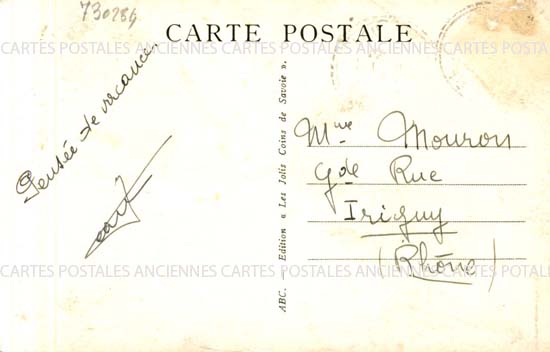 730284
CARTE POSTALE
CARTES POSTALES ANCIENNES CARTES POSTALES ANCIENNES CARTES POSTALES
Pensée de vacances
ABC. — Edition « Les Jolis Coins de Savoie ».
Mme Mouron
Gde Rue
Irigny
(Rhône)
CARTES POSTALES ANCIENNES CARTES POSTALES ANCIENNES CARTES POSTALES